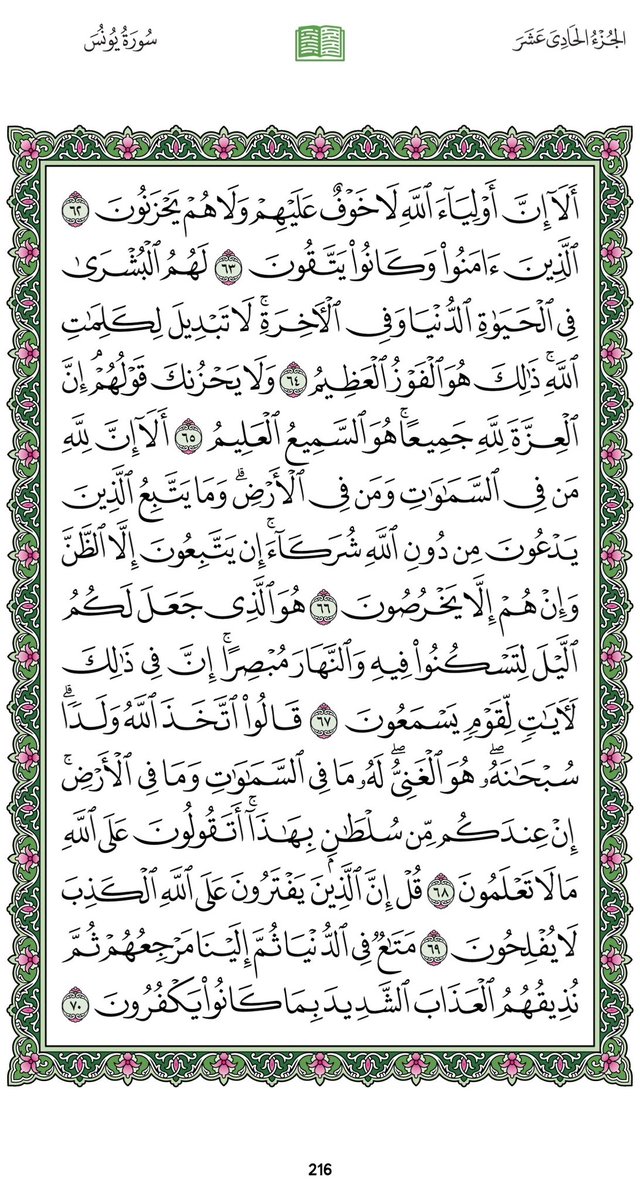 الجُزْءُ الحَادِى عَشَرَ
سُورَةُ يُونُسَ
أَلَآ إِنَّ أَوْلِيَآءَ ٱللَّهِ لَا خَوْفٌ عَلَيْهِمْ وَلَا هُمْ يَحْزَنُونَ ٦٢
ٱلَّذِينَ ءَامَنُوا۟ وَكَانُوا۟ يَتَّقُونَ ٦٣ لَهُمُ ٱلْبُشْرَىٰ
فِى ٱلْحَيَوٰةِ ٱلدُّنْيَا وَفِى ٱلْـَٔاخِرَةِ ۚ لَا تَبْدِيلَ لِكَلِمَـٰتِ
ٱللَّهِ ۚ ذَٰلِكَ هُوَ ٱلْفَوْزُ ٱلْعَظِيمُ ٦٤ وَلَا يَحْزُنكَ قَوْلُهُمْ ۘ إِنَّ
ٱلْعِزَّةَ لِلَّهِ جَمِيعًا ۚ هُوَ ٱلسَّمِيعُ ٱلْعَلِيمُ ٦٥ أَلَآ إِنَّ لِلَّهِ
مَن فِى ٱلسَّمَـٰوَٰتِ وَمَن فِى ٱلْأَرْضِ ۗ وَمَا يَتَّبِعُ ٱلَّذِينَ
يَدْعُونَ مِن دُونِ ٱللَّهِ شُرَكَآءَ ۚ إِن يَتَّبِعُونَ إِلَّا ٱلظَّنَّ
وَإِنْ هُمْ إِلَّا يَخْرُصُونَ ٦٦ هُوَ ٱلَّذِى جَعَلَ لَكُمُ
ٱلَّيْلَ لِتَسْكُنُوا۟ فِيهِ وَٱلنَّهَارَ مُبْصِرًا ۚ إِنَّ فِى ذَٰلِكَ
لَـَٔايَـٰتٍ لِّقَوْمٍ يَسْمَعُونَ ٦٧ قَالُوا۟ ٱتَّخَذَ ٱللَّهُ وَلَدًا ۗ
سُبْحَـٰنَهُۥ ۖ هُوَ ٱلْغَنِىُّ ۖ لَهُۥ مَا فِى ٱلسَّمَـٰوَٰتِ وَمَا فِى ٱلْأَرْضِ ۚ
إِنْ عِندَكُم مِّن سُلْطَـٰنٍۭ بِهَـٰذَآ ۚ أَتَقُولُونَ عَلَى ٱللَّهِ
مَا لَا تَعْلَمُونَ ٦٨ قُلْ إِنَّ ٱلَّذِينَ يَفْتَرُونَ عَلَى ٱللَّهِ ٱلْكَذِبَ
لَا يُفْلِحُونَ ٦٩ مَتَـٰعٌ فِى ٱلدُّنْيَا ثُمَّ إِلَيْنَا مَرْجِعُهُمْ ثُمَّ
نُذِيقُهُمُ ٱلْعَذَابَ ٱلشَّدِيدَ بِمَا كَانُوا۟ يَكْفُرُونَ ٧٠
216